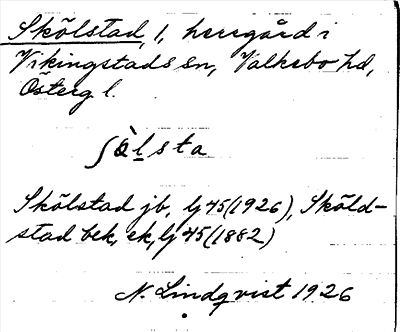 Skölstad, 1, herrgård i
Vikingstads sn, Valkebo hd,
Österg l.
ʃö̀l̠sta
Skölstad jb, lj 45 (1926), Sköld-
stad bek, ek, lj 45 (1882)
N. Lindqvist 1926